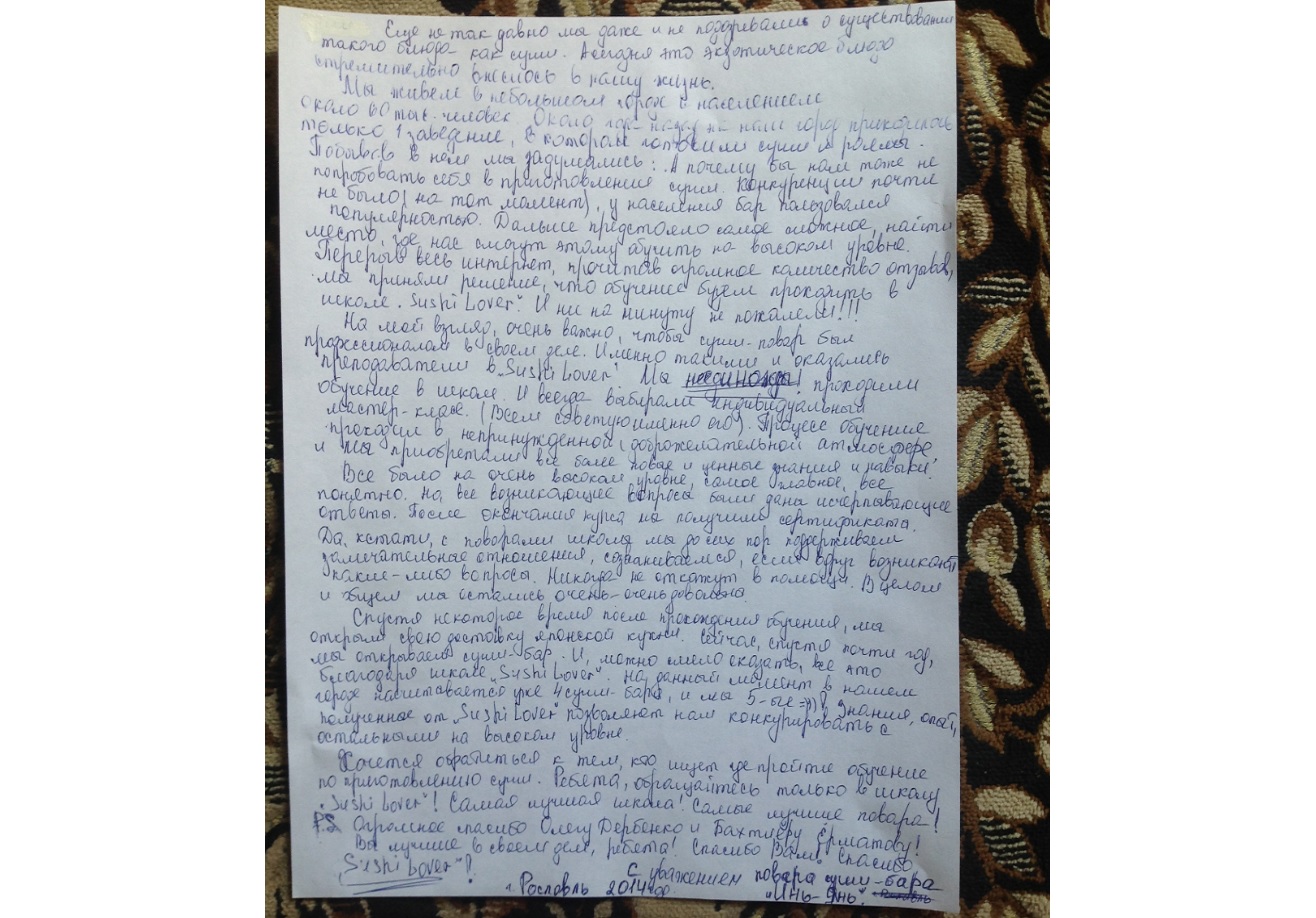 Еще не так давно мы даже и не подозревали о существовании
такого блюда как суши. А сегодня это экзотическое блюдо
стремительно внеслось в нашу жизнь.
Мы живем в небольшом городе с населением
около 60 тыс. человек. Около года назад на наш город приходилось
только 1 заведение, в котором готовили суши и роллы.
Побывав в нем мы задумались: А почему бы нам тоже не
попробовать себя в приготовлении суши. Конкуренции почти
не было (на тот момент), у населения бар пользовался
популярностью. Дальше предстояло самое сложное, найти
место, где нас смогут этому обучить на высоком уровне.
Перерыв весь интернет, прочитав огромное количество отзывов,
мы приняли решение, что обучение будем проходить в
школе „Sushi Lover“. И ни на минуту не пожалели!!!
На мой взгляд, очень важно, чтобы суши-повар был
профессионалом в своем деле. Именно такими и оказались
преподаватели в „Sushi Lover“. Мы неединожды! проходили
обучение в школе. И всегда выбирали индивидуальный
мастер-класс. (Всем советую именно его). Процесс обучения
проходил в непринужденной, доброжелательной атмосфере,
и мы приобретали все более новые и ценные знания и навыки.
Все было на очень высоком уровне, самое главное, все
понятно. На все возникающие вопросы были даны исчерпывающие
ответы. После окончания курса мы получили сертификаты.
Да, кстати, с поворами школы мы до сих пор поддерживаем
замечательные отношения, созваниваемся, если вдруг возникают
какие-либо вопросы. Никогда не откажут в помощи. В целом
и общем мы остались очень-очень довольны.
Спустя некоторое время после прохождения обучения, мы
открыли свою доставку японской кухни. Сейчас, спустя почти год,
мы открываем суши-бар. И, можно смело сказать, все это
благодаря школе „Sushi Lover“. На данный момент в нашем
городе насчитывается уже 4 суши-бара, и мы 5-ые =))) Знания, опыт,
полученное от „Sushi Lover“ позволяют нам конкурировать с
остальными на высоком уровне.
Хочется обратиться к тем, кто ищет где пройти обучение
по приготовлению суши. Ребята, обращайтесь только в школу
„Sushi Lover“! Самая лучшая школа! Самые лучшие повара!
P.S Огромное спасибо Олегу Дербенко и Бахтиеру Ерматову!
Вы лучшие в своем деле, ребята! Спасибо Вам. Спасибо
„Sushi Lover“!
С уважением повара суши-бара
г. Рославль 2014 год. "Инь-Янь".